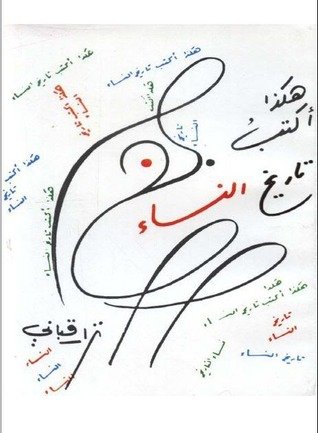 هكذا أكتب تاريخ النساء
هكذا أكتب تاريخ النساء
هكذا
أكتبُ
تاريخ
النساء
هكذا أكتب
تاريخ
النساء
هكذا أكتب تاريخ النساء
نزار قباني
هكذا
أكتب تاريخ النساء
تاريخ
النساء
تاريخ النساء
النساء
النساء
النساء